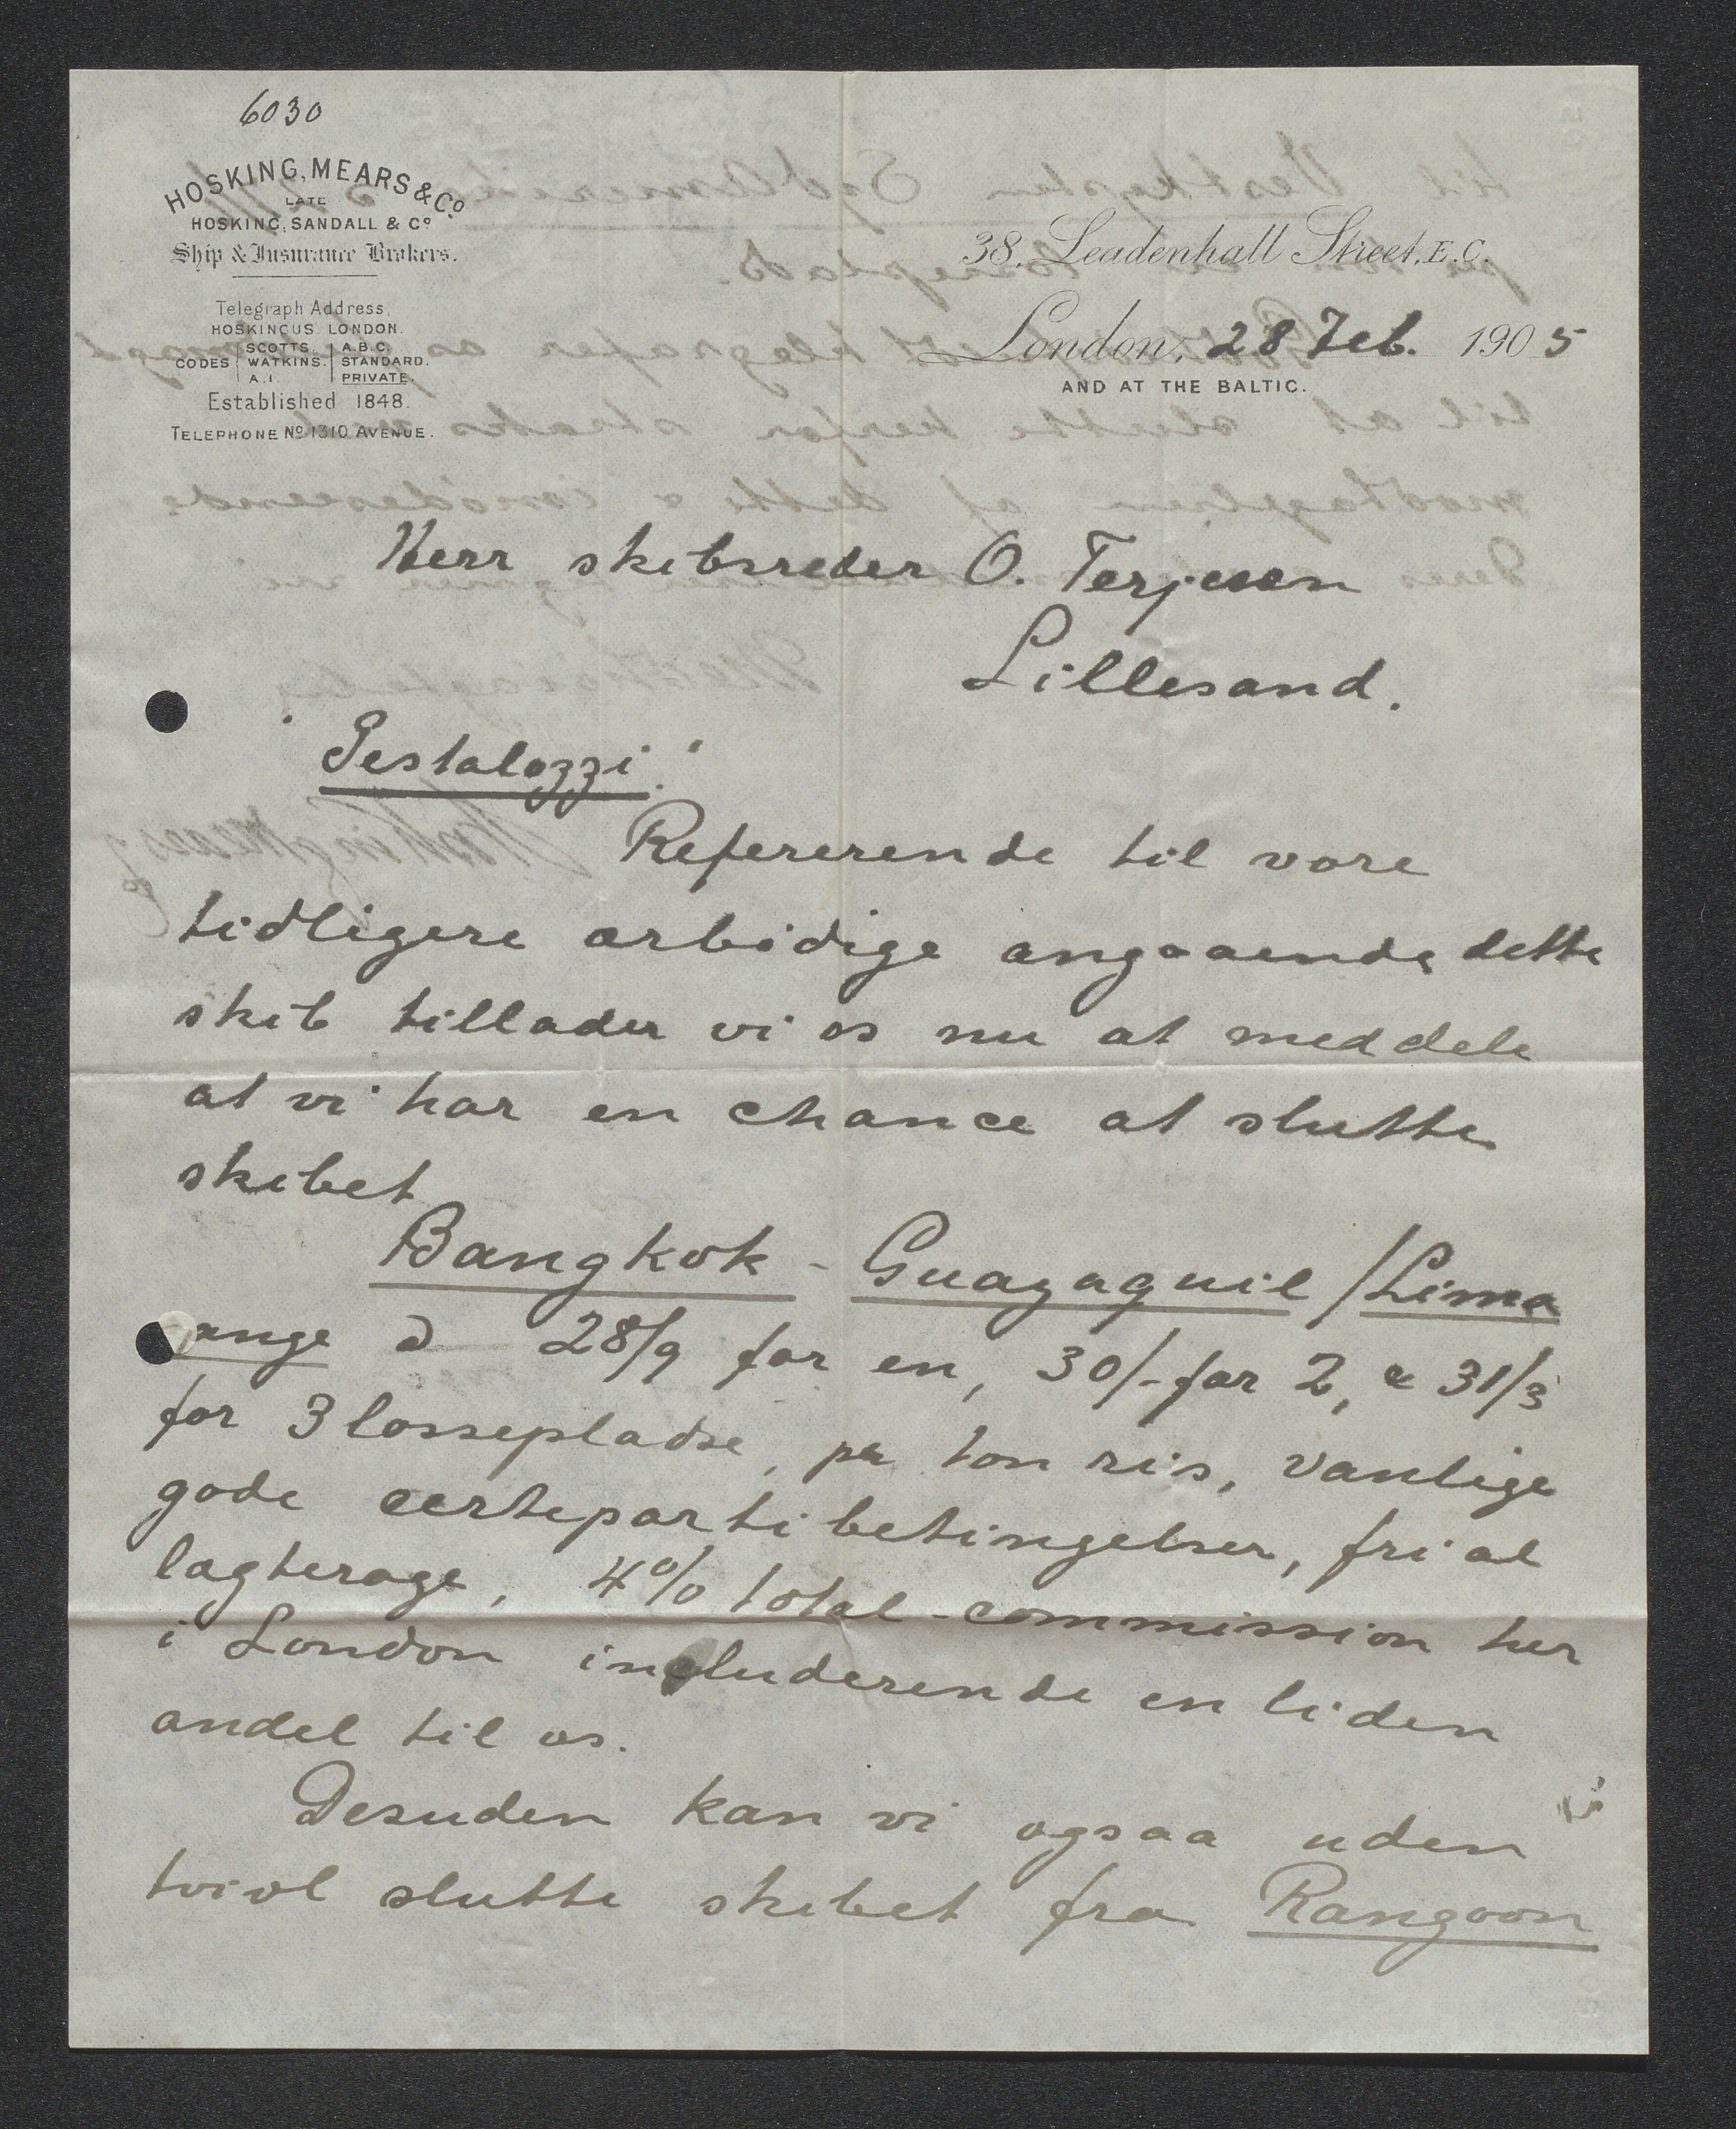 6030
HOSKING, MEARS & Co
LATE
HOSKING, SANDALL & Co
Ship & Insurance Brokers.
Telegraph Address,
HOSKINGUS. LONDON.
CODES SCOTTS. WATKINS. A.I. A.B.C. STANDARD. PRIVATE.
Established 1848.
TELEPHONE No 1310 AVENUE.
38, Leadenhall Street, E.C.
London, 28 Feb. 1905
AND AT THE BALTIC.
Herr skibsreder O. Terjesen
Lillesand.
"Pestalozzi"
Refererende til vore
tidligere ærbödige angaaende dette
skib tillader vi os nu at meddele
at vi har en chance at slutte
skibet
Bangkok - Guayaquil / Lima
range à 28/9 for en, 30/- for 2, & 31/3
for 3 lossepladse, per ton ris, vanlige
gode certepartibetingelser, fri al
lagterage, 4% total-commission her
i London includerende en liden
andel til os.
Desuden kan vi ogsaa uden
tvivl slutte skibet fra Rangoon